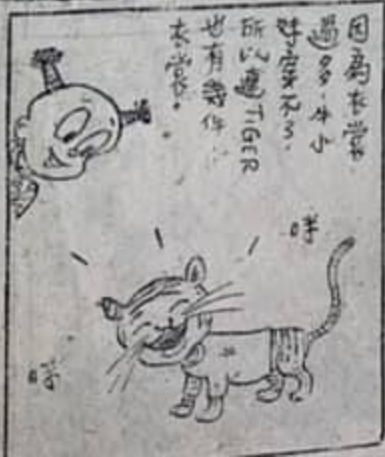 因為衣裳
過多牛小
妹穿不了,
所以連TIGER
也有幾件
衣裳。